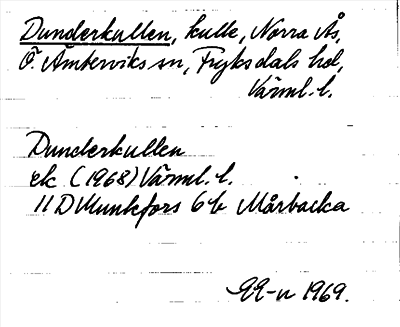 Dunderkullen, kulle, Norra Ås,
Ö. Ämterviks sn, Fryksdals hd,
Värml. l.
Dunderkullen
ek (1968) Värml. l.
11 D Munkfors 6 b Mårbacka
1969.